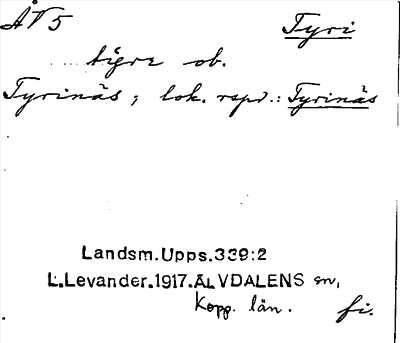 ÅV5 Tyri
tigre ob.
Tyrinäs; lok. rspr.: Tyrinäs
Landsm.Upps.339:2
L.Levander.1917.ÄLVDALENS sn,
Kopp. län. fi.